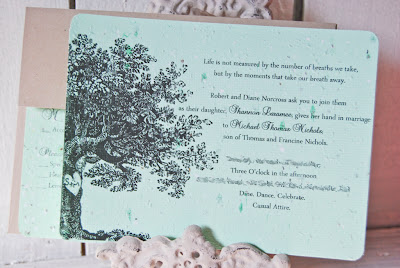 Life is not measured by the number of breaths we take,
but by the moments that take our breath away.
Robert and Diane Norcross ask you to join them
as their daughter, Shannon gives her hand in marriage
to Michael Thomas Nichols,
son of Thomas and Francine Nichols.
Three O'clock in the afternoon
Dine. Dance. Celebrate.
Casual Attire.